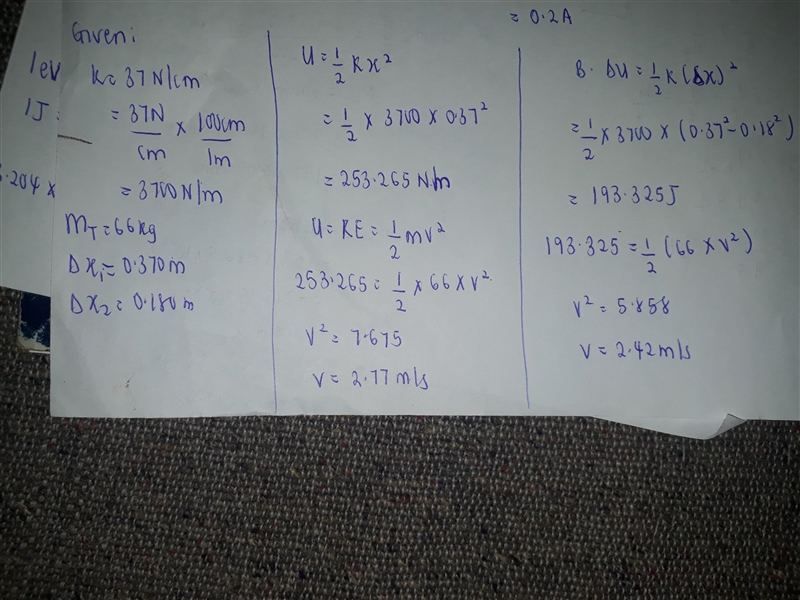 = 0.2A
Given:
K = 37 N/cm
= 37N/cm × 100cm/1m
= 3700 N/m
M_T = 66 kg
Δx₁ = 0.370 m
Δx₂ = 0.180 m
U = 1/2 Kx²
= 1/2 × 3700 × 0.37²
= 253.265 N.m
U = KE = 1/2 mv²
253.265 = 1/2 × 66 × v²
v² = 7.675
v = 2.77 m/s
B. ΔU = 1/2 K (Δx)²
= 1/2 × 3700 × (0.37² - 0.18²)
= 193.325J
193.325 = 1/2 (66 × v²)
v² = 5.858
v = 2.42 m/s
1ev
1J
.204 ×